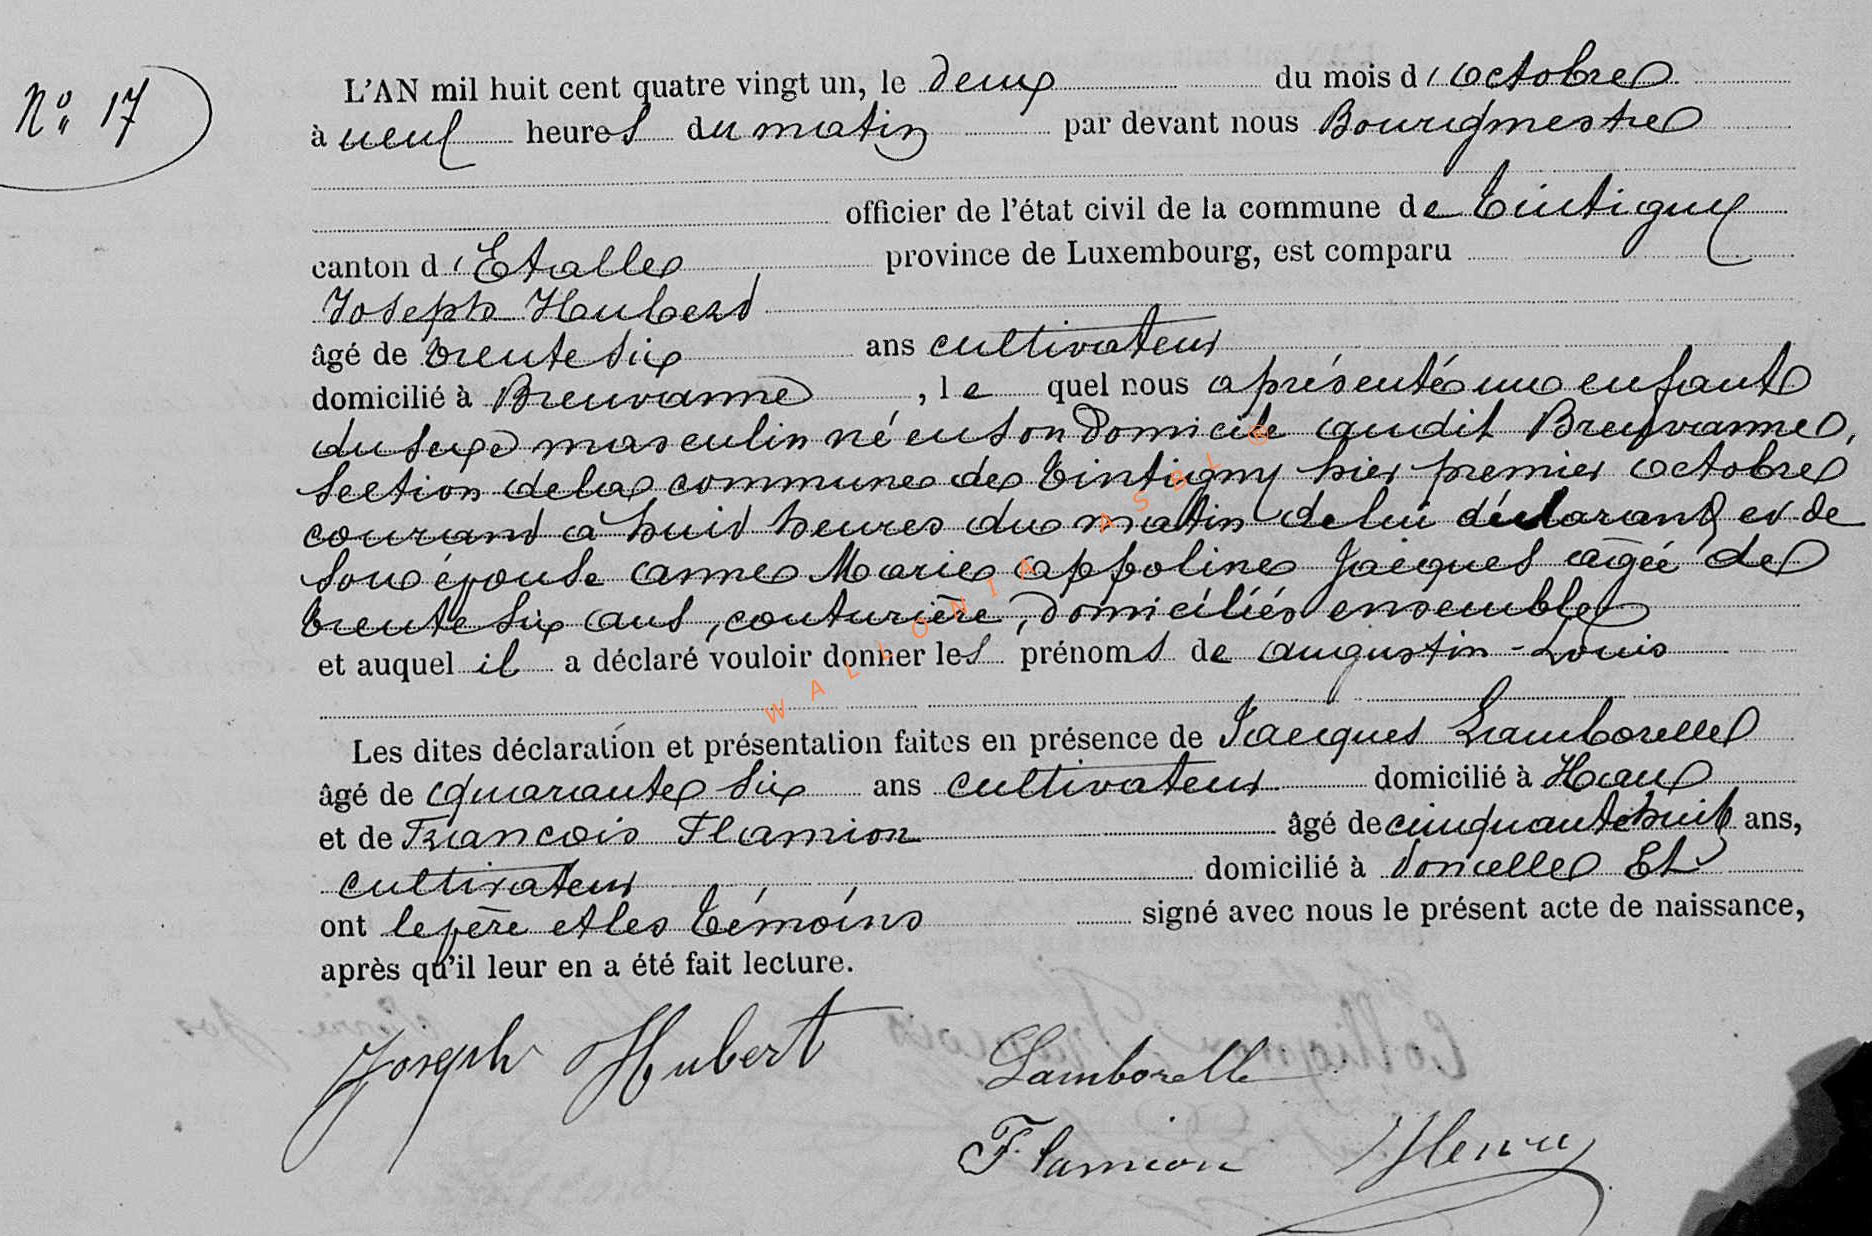 N° 17
L'AN mil huit cent quatre vingt un, le deux du mois d'octobre
à neuf heures du matin par devant nous Bourgmestre
officier de l'état civil de la commune de Tintigny
canton d'Etalle province de Luxembourg, est comparu
Joseph Hubert
âgé de trente six ans cultivateur
domicilié à Breuvanne, lequel nous a présenté un enfant
du sexe masculin né en son domicile audit Breuvanne,
section de la commune de Tintigny hier premier octobre
courant à huit heures du matin de lui déclarant et de
son épouse anne Marie appoline Jacques agée de
trente six ans, couturière, domiciliés ensemble
et auquel il a déclaré vouloir donner les prénoms de augustin-Louis
Les dites déclaration et présentation faites en présence de Jacques Lamborelle
âgé de quarante six ans cultivateur domicilié à Han
et de Francois Flamion âgé de cinquante huit ans,
cultivateur domicilié à Et
ont le père et les témoins signé avec nous le présent acte de naissance,
après qu'il leur en a été fait lecture.
Joseph Hubert Lamborelle
Flamion Henry
WALLONIA ASBL ©